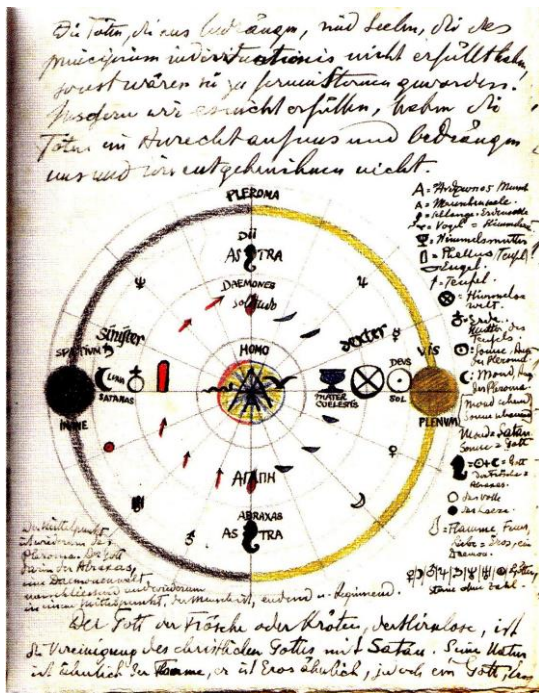 Die Toten, die uns bedrängen, sind Seelen, die das
principium individuationis nicht erfüllt haben,
sonst wären sie zu fernen Sternen geworden.
Insofern wir es nicht erfüllen, haben die
Toten ein Anrecht auf uns und bedrängen
uns und wir entgehen ihnen nicht.
PLEROMA
DII
ASTRA
DAEMONES
HOMO
sinister
dexter
SPATIUM
INANE
LUNA
SATANAS
MATER
COELESTIS
DEUS
SOL
VIS
PLENUM
ΑΓΑΠΗ
ABRAXAS
ASTRA
A = Mensch
= Vogel =
= Himmelsmutter
= Phallus Teufel
= Engel.
= Teufel.
= Himmels
welt.
= Erde
Mutter des
Teufels.
= Sonne, Auge
des Pleroma.
= Mond, Auge
des Pleroma
Mond = Satan
Sonne = Gott
= Gott
der Frösche =
Abraxas.
das Volle
das Leere
= Flamme, Feuer,
Liebe = Eros, ein
Daemon.
Götter,
Sterne ohne Zahl.
Der Mittelpunkt
ist wiederum das
Pleroma. Der Gott
darin der Abraxas,
eine Daemonenwelt
umschliesst ihn und wiederum
in einem Mittelpunkt, der Mensch ist, endend u. beginnend.
Der Gott der Frösche oder Kröten, der Hirnlose, ist
die Vereinigung des christlichen Gottes mit Satan. Seine Natur
ist ähnlich der Flamme, er ist Eros ähnlich, jedoch ein Gott, Eros